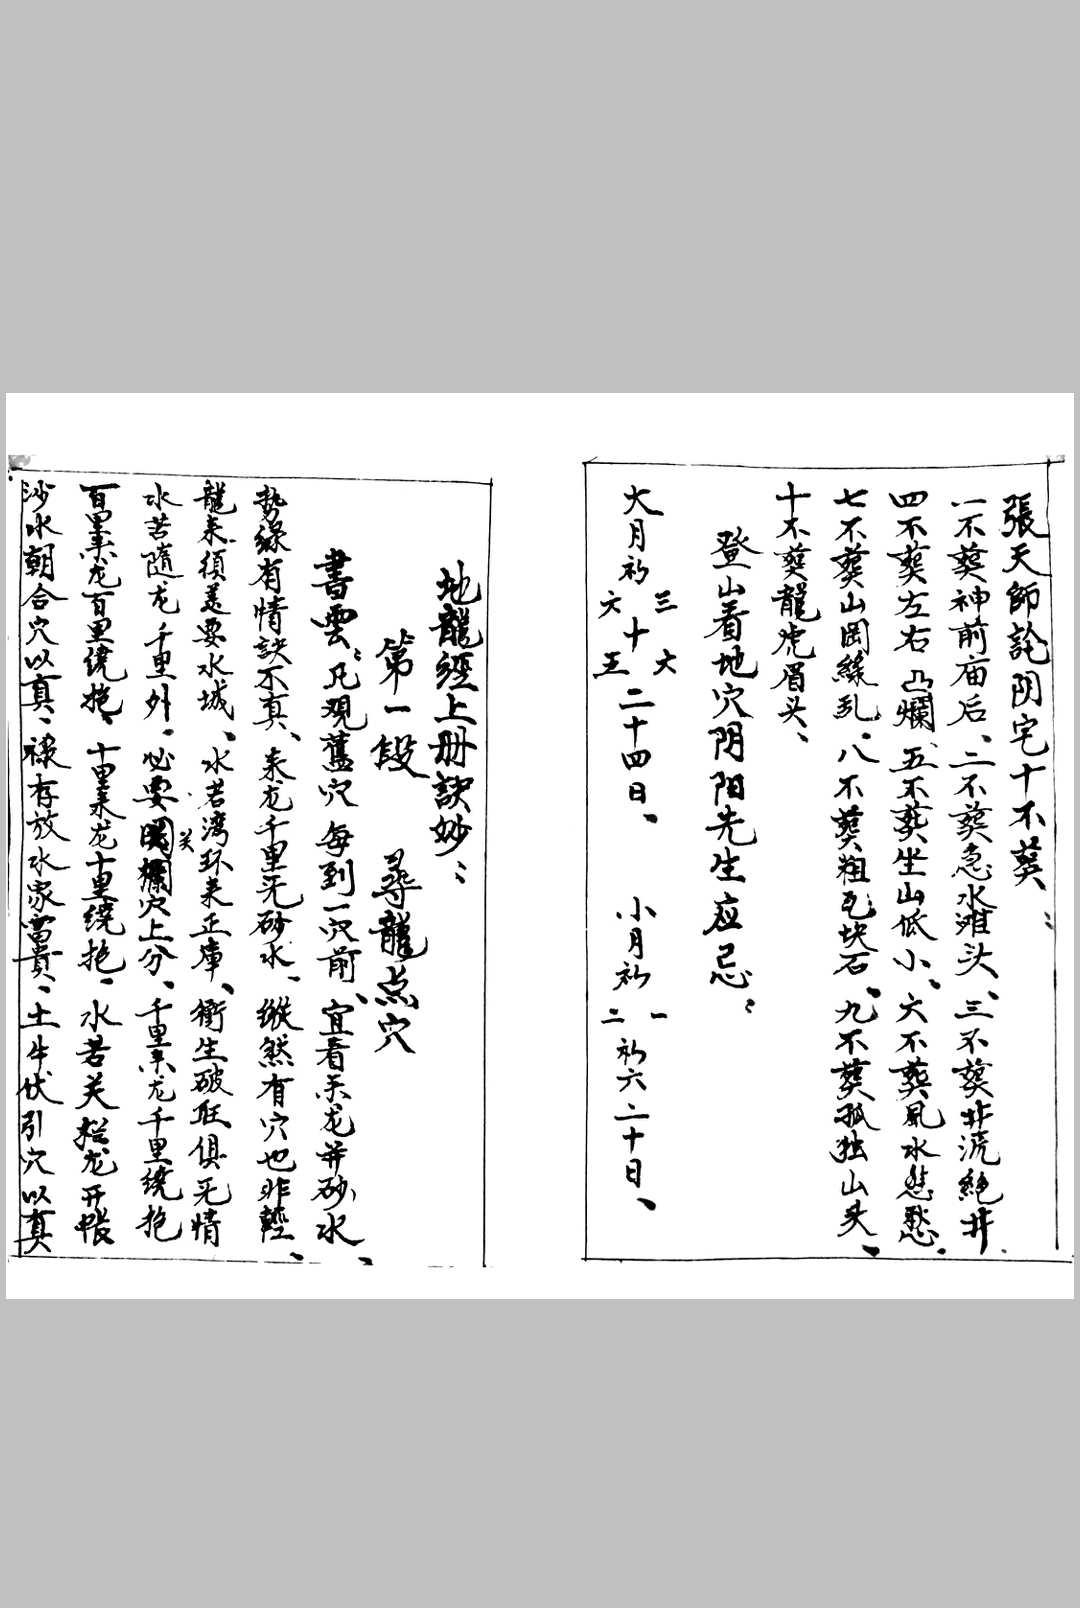 張天師論阴宅十不葬：
一不葬神前庙后、二不葬急水滩头、三不葬非流絕井、
四不葬左右凸爛、五不葬坐山低小、六不葬風水愁愁、
七不葬山岡綠乱、八不葬粗瓦块石、九不葬孤独山头、
十不葬龍虎眉头、
登山看地穴阴阳先生应忌：
大月初三六十大五二十四日、 小月初一二初六二十日、
地龍經上册訣妙：
第一段 尋龍点穴
書雲：凡观舊穴每到一穴前、宜看来龙并砂水、
势綠有情訣不真、来龙千里无砂水、縱然有穴也非輕、
龍来須美要水城、水若湾环来正庫、衝生破旺俱无情
水苦隨龙千里外、必要関攔穴上分、千里来龙千里绕抱
百里来龙百里绕抱、十里来龙十里绕抱、水若关拦龙开帳
沙水朝合穴以真、禄存放水家富貴、土牛伏引穴以真